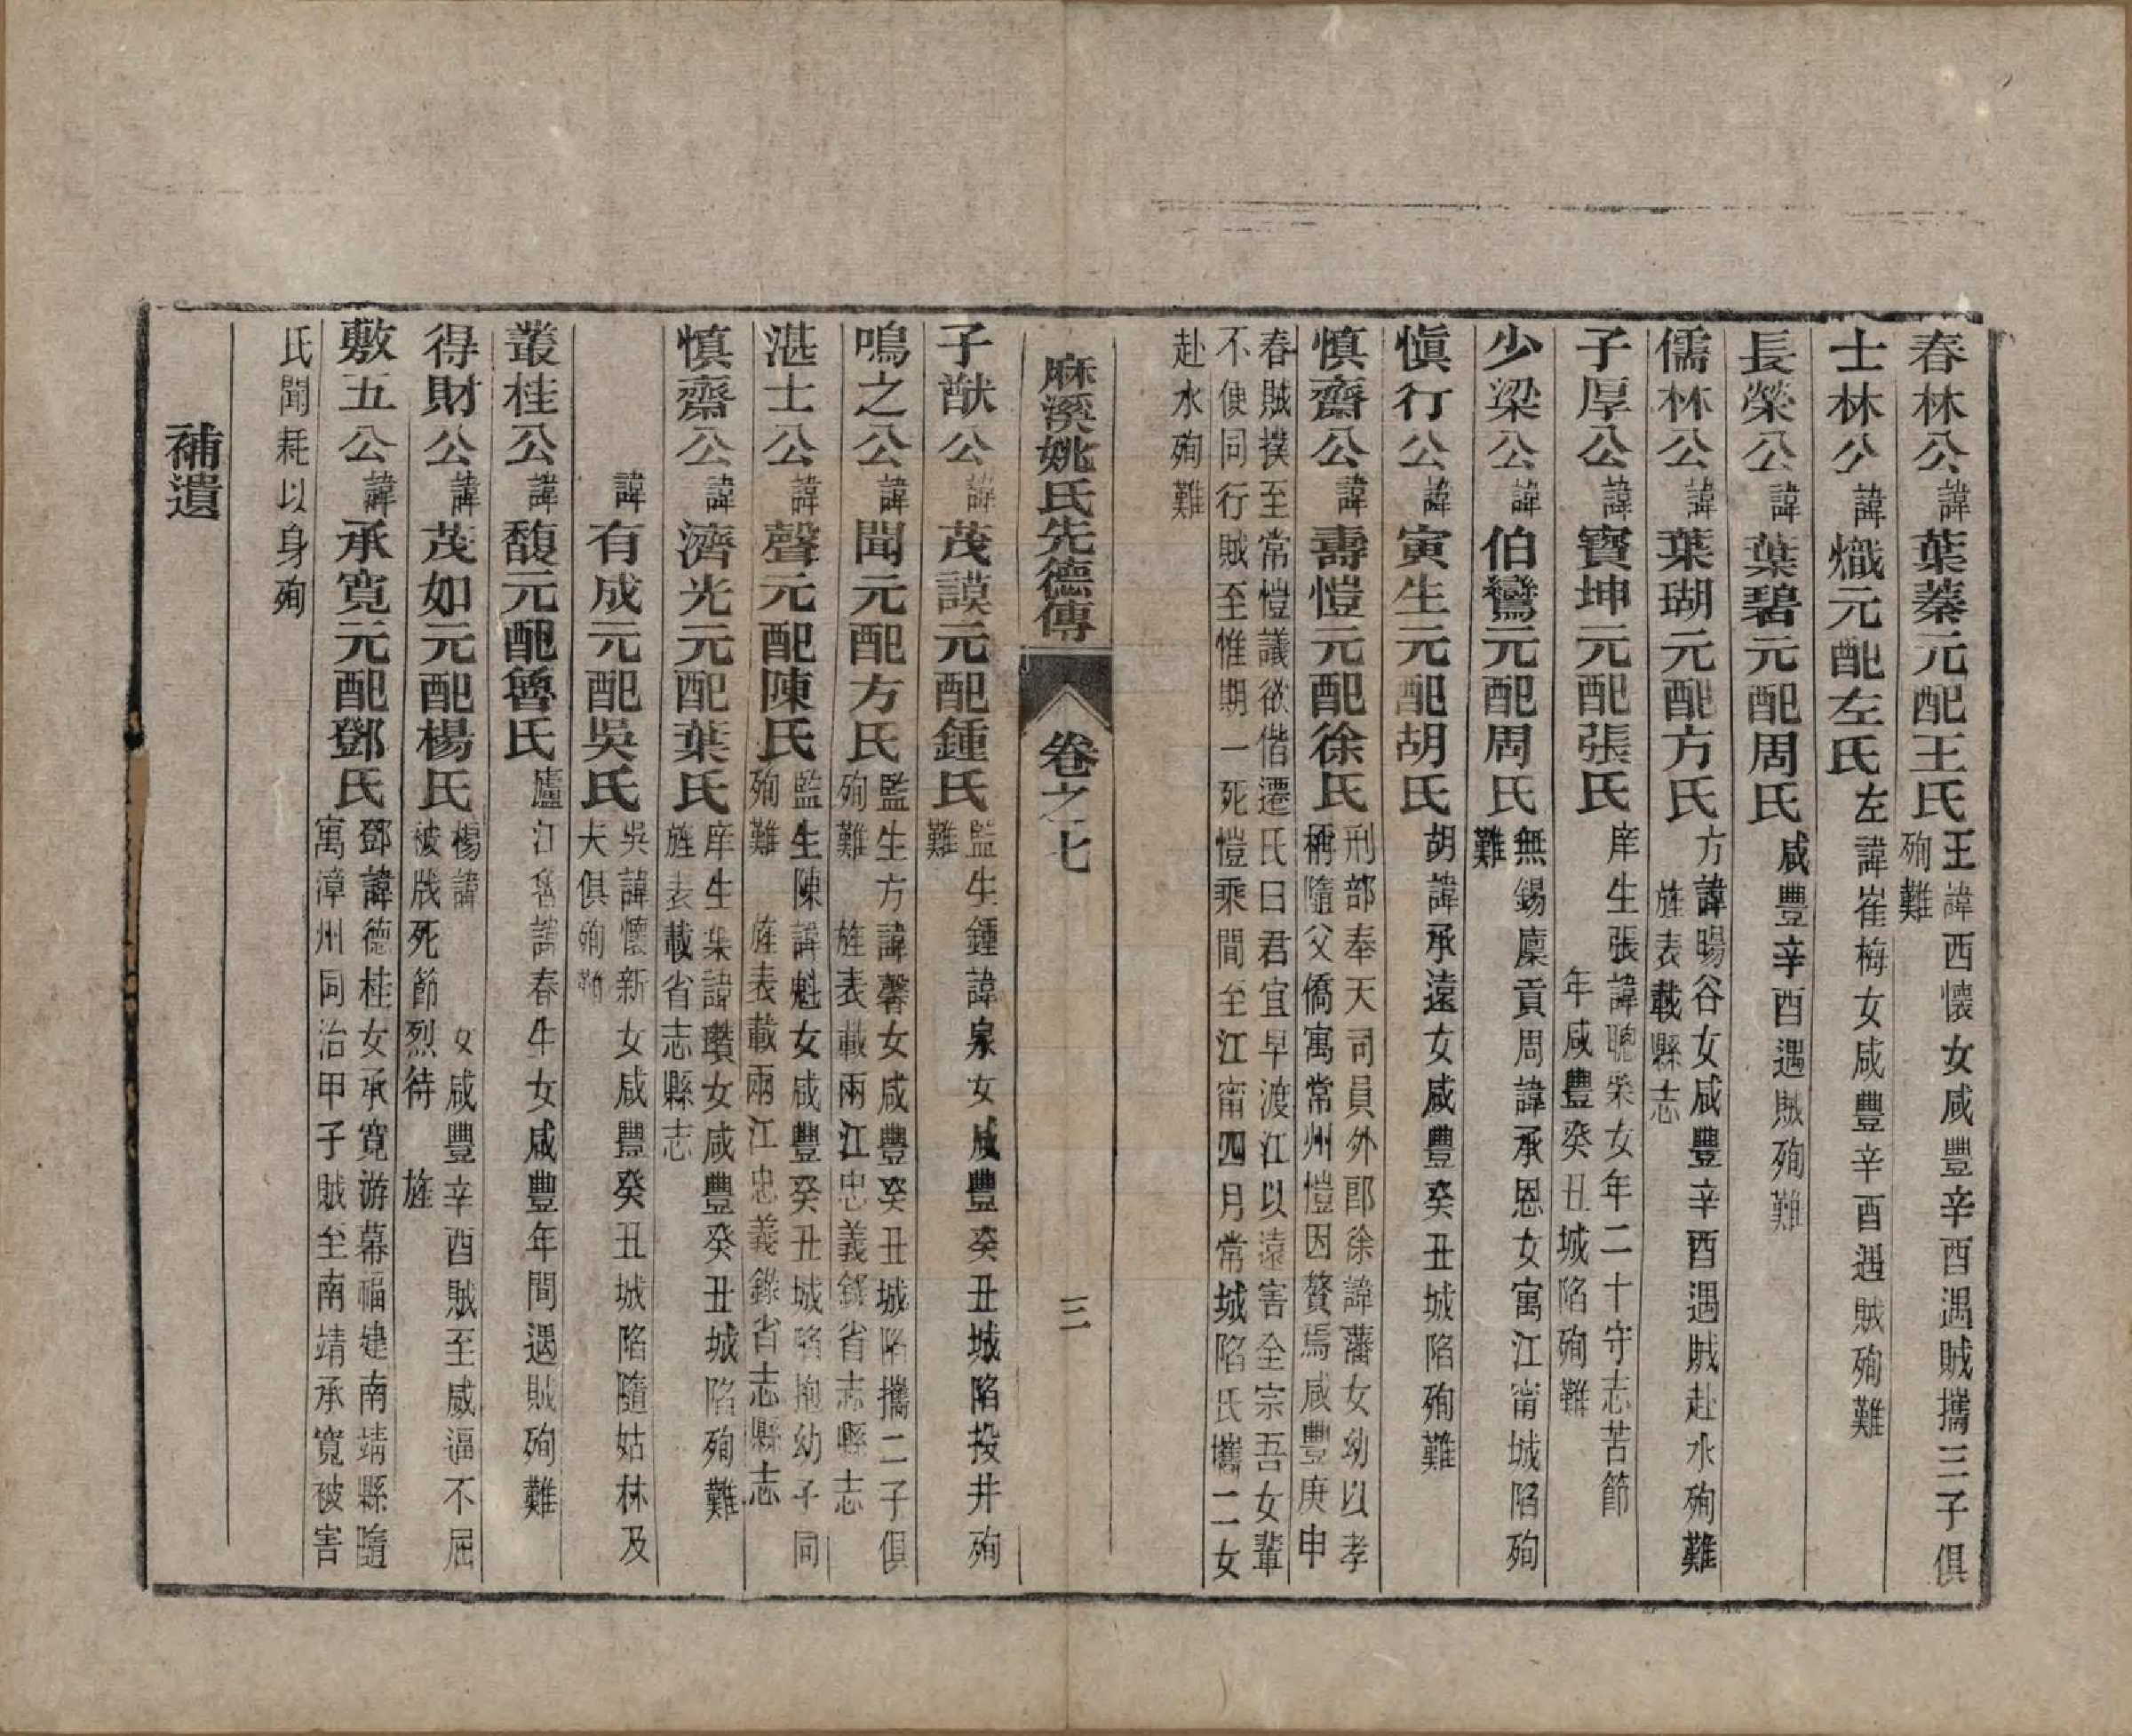 春林公諱葉蓁元配王氏王諱西懷女咸豐辛酉遇賊攜三子俱殉難
士林公諱熾元配左氏左諱崔梅女咸豐辛酉遇賊殉難
長榮公諱葉碧元配周氏咸豐辛酉遇賊殉難
儒林公諱葉瑚元配方氏方諱暘谷女咸豐辛酉遇賊赴水殉難旌表載縣志
子厚公諱寶坤元配張氏庠生張諱聰榘女年二十守志苦節年咸豐癸丑城陷殉難
少梁公諱伯鸞元配周氏無錫廩貢周諱承恩女寓江甯城陷殉難
愼行公諱寅生元配胡氏胡諱承遠女咸豐癸丑城陷殉難
慎齋公諱壽愷元配徐氏刑部奉天司員外郎徐諱藩女幼以孝稱隨父僑寓常州愷因贅焉咸豐庚申
春賊撲至常愷議欲偕遷氏曰君宜早渡江以遠害全宗吾女輩
不便同行賊至惟期一死愷乘間至江甯四月常城陷氏攜二女
赴水殉難
麻溪姚氏先德傳 卷之七 三
子猷公諱茂謨元配鍾氏監生鍾諱泉女咸豐癸丑城陷投井殉難
鳴之公諱聞元配方氏監生方諱馨女咸豐癸丑城陷攜二子俱殉難 旌表載兩江忠義錄省志縣志
湛士公諱聲元配陳氏監生陳諱魁女咸豐癸丑城陷抱幼子同殉難 旌表載兩江忠義錄省志縣志
慎齋公諱濟光元配葉氏庠生葉諱瓚女咸豐癸丑城陷殉難旌表載省志縣志
諱有成元配吳氏吳諱懷新女咸豐癸丑城陷隨姑林及夫俱殉難
叢桂公諱馥元配魯氏廬江魯諱春生女咸豐年間遇賊殉難
得財公諱茂如元配楊氏楊諱 女咸豐辛酉賊至威逼不屈被戕死節烈待 旌
敷五公諱承寬元配鄧氏鄧諱德桂女承寬游幕福建南靖縣隨寓漳州同治甲子賊至南靖承寬被害
氏聞耗以身殉
補遺